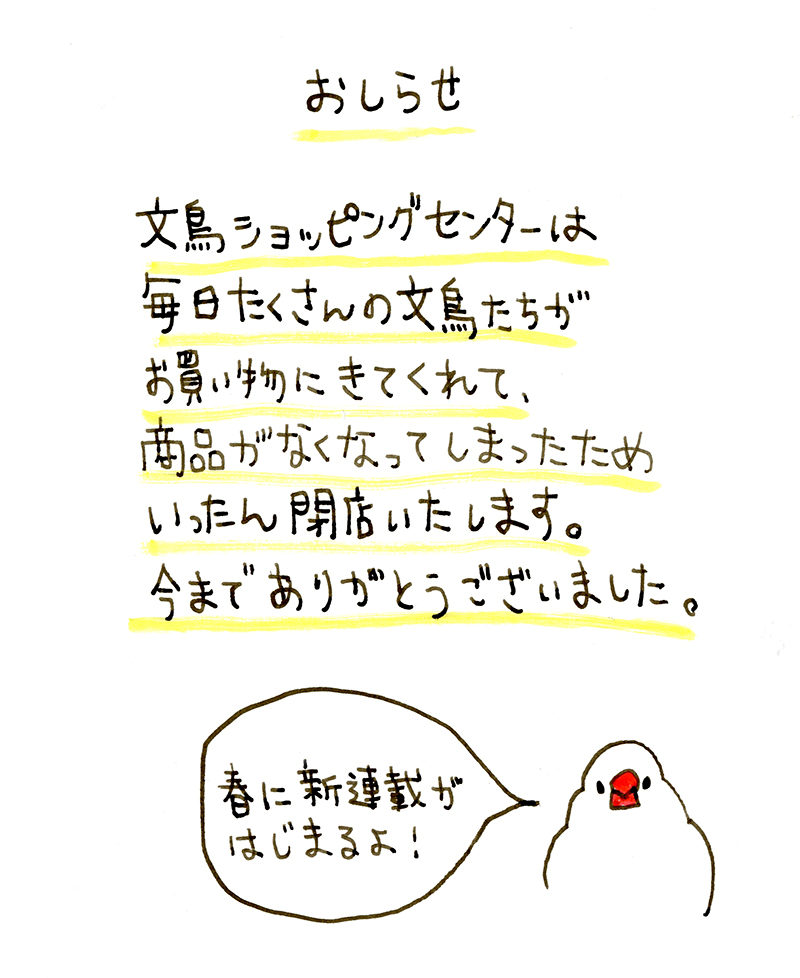 おしらせ
文鳥ショッピングセンターは
毎日たくさんの文鳥たちが
お買い物にきてくれて、
商品がなくなってしまったため
いったん閉店いたします。
今までありがとうございました。
春に新連載が
はじまるよ!